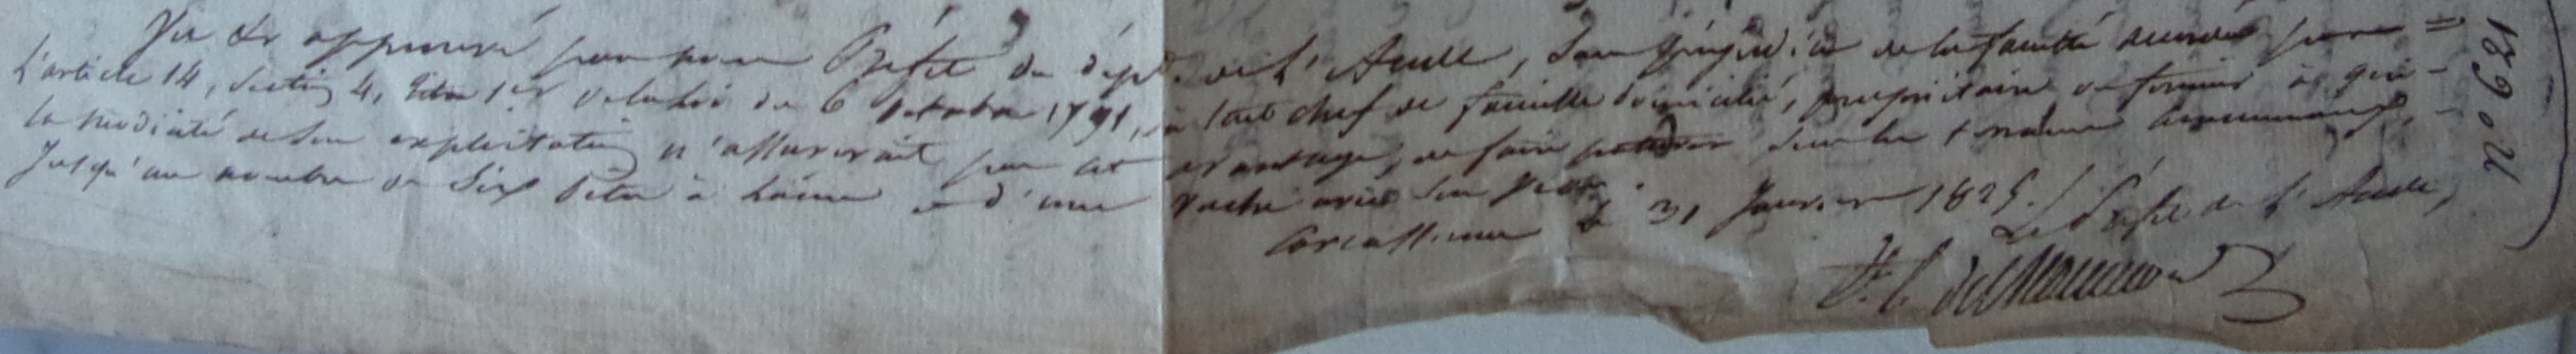 Vu et approuvé par nous Préfet du dépt. de l'Aude, sans préjudice de la faculté accordée par
l'article 14, section 4, titre 1er de la loi du 6 octobre 1791, à tout chef de famille domicilié, propriétaire ou fermier à qui
la modicité de son exploitation n'assurerait pas cet avantage, de faire sur les terrains communaux,
jusqu'au nombre de six bêtes à laine et d'une vache avec son veau.
Carcassonne le 31 Janvier 1825. Le Préfet de l'Aude,